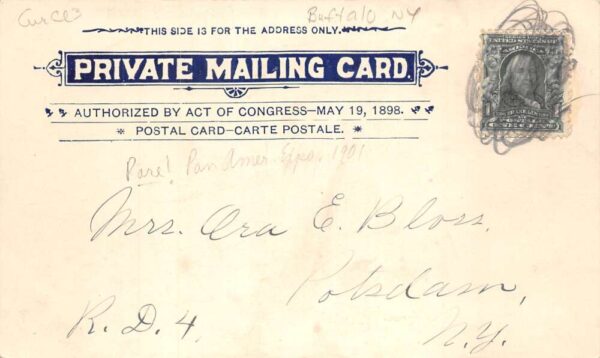 Buffalo NY
THIS SIDE IS FOR THE ADDRESS ONLY.
PRIVATE MAILING CARD.
AUTHORIZED BY ACT OF CONGRESS–MAY 19, 1898.
POSTAL CARD–CARTE POSTALE.
Rare! Pan Amer. Expo. 1901
Mrs. Ora E. Bloss.
Potsdam,
R. D. 4. N.Y.